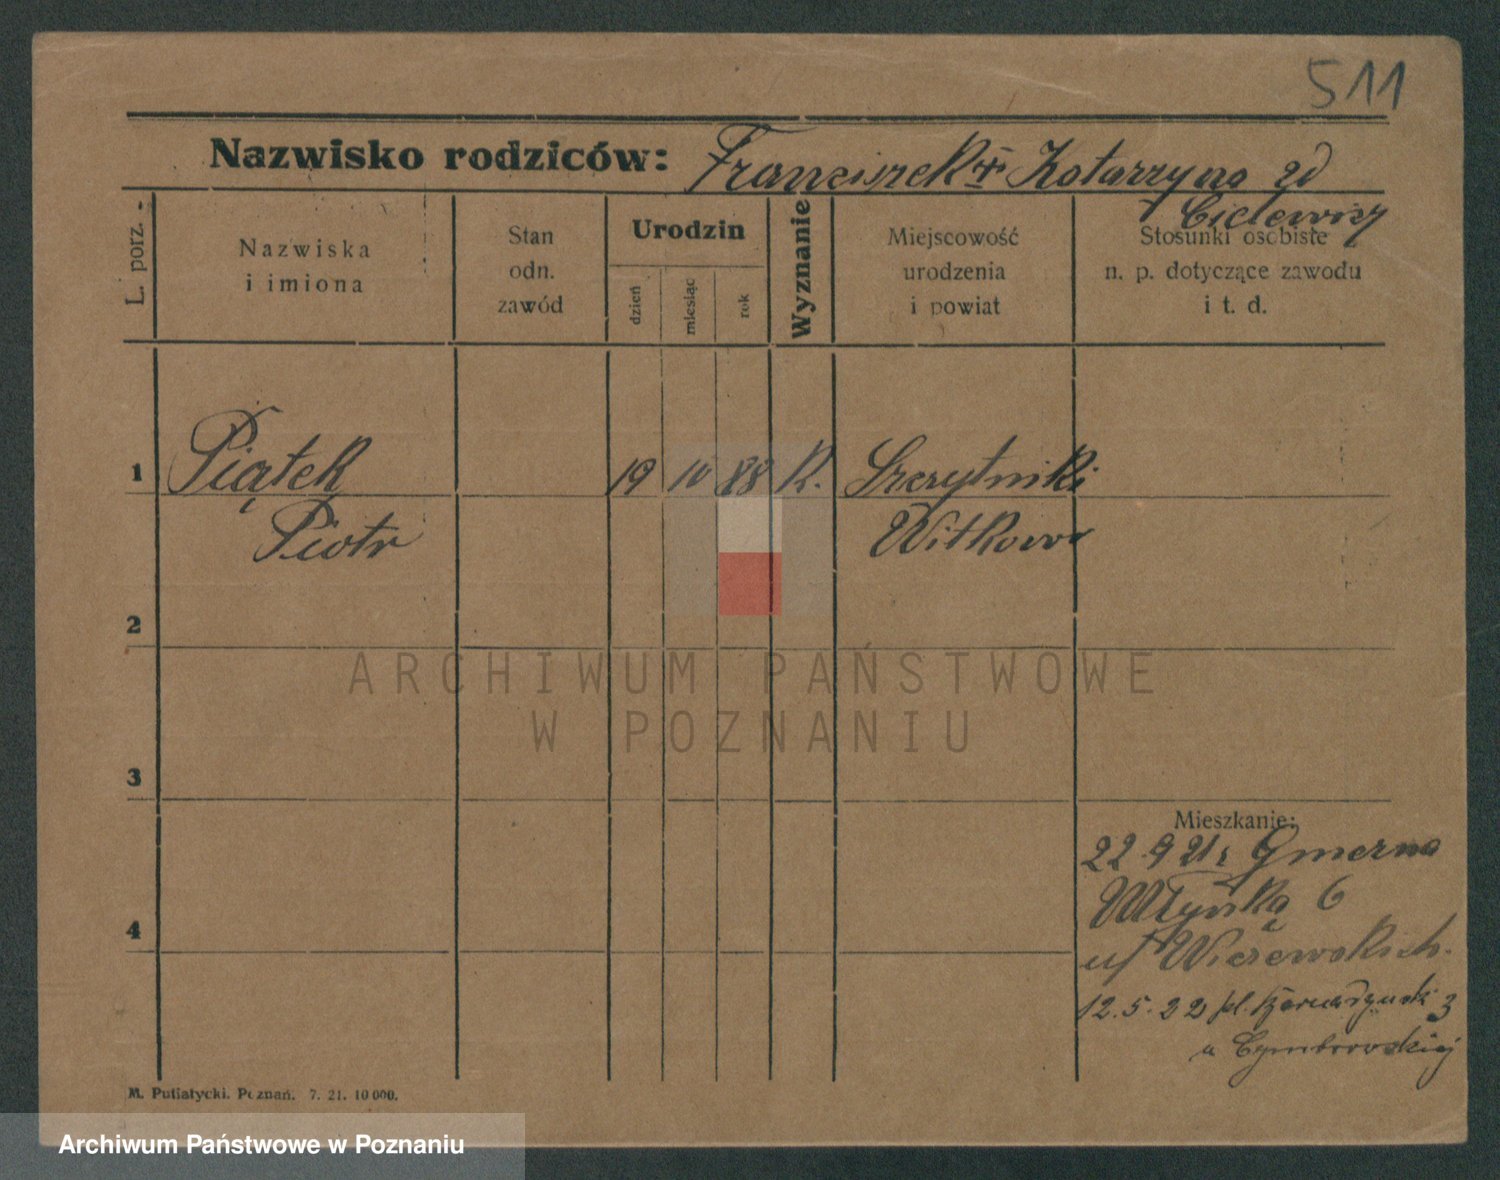 511
Nazwisko rodziców: Franciszek Katarzyna zd
L. porz.
Nazwiska
i imiona
Stan
odn.
zawód
Urodzin
dzień
miesiąc
rok
Wyznanie
Miejscowość
urodzenia
i powiat
Stosunki osobiste
n. p. dotyczące zawodu
i t. d.
1 Piątek 19 10 88 K. Szczytniki
Piotr Witkowo
2
3
4
Mieszkanie:
22 9 21 r Gniezno
Młyńska 6
12.5.22 pl.
u
M. Putiatycki. Poznań. 7. 21. 10 000.
ARCHIWUM PAŃSTWOWE
W POZNANIU
Archiwum Państwowe w Poznaniu